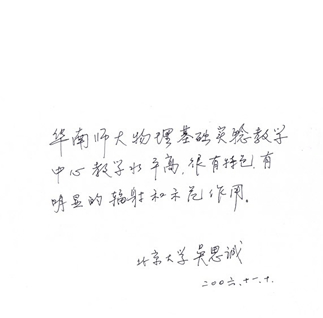 华南师大物理基础实验教学
中心教学水平高,很有特色,有
明显的辐射和示范作用。
北京大学 吴思诚
二00六.十一.十.